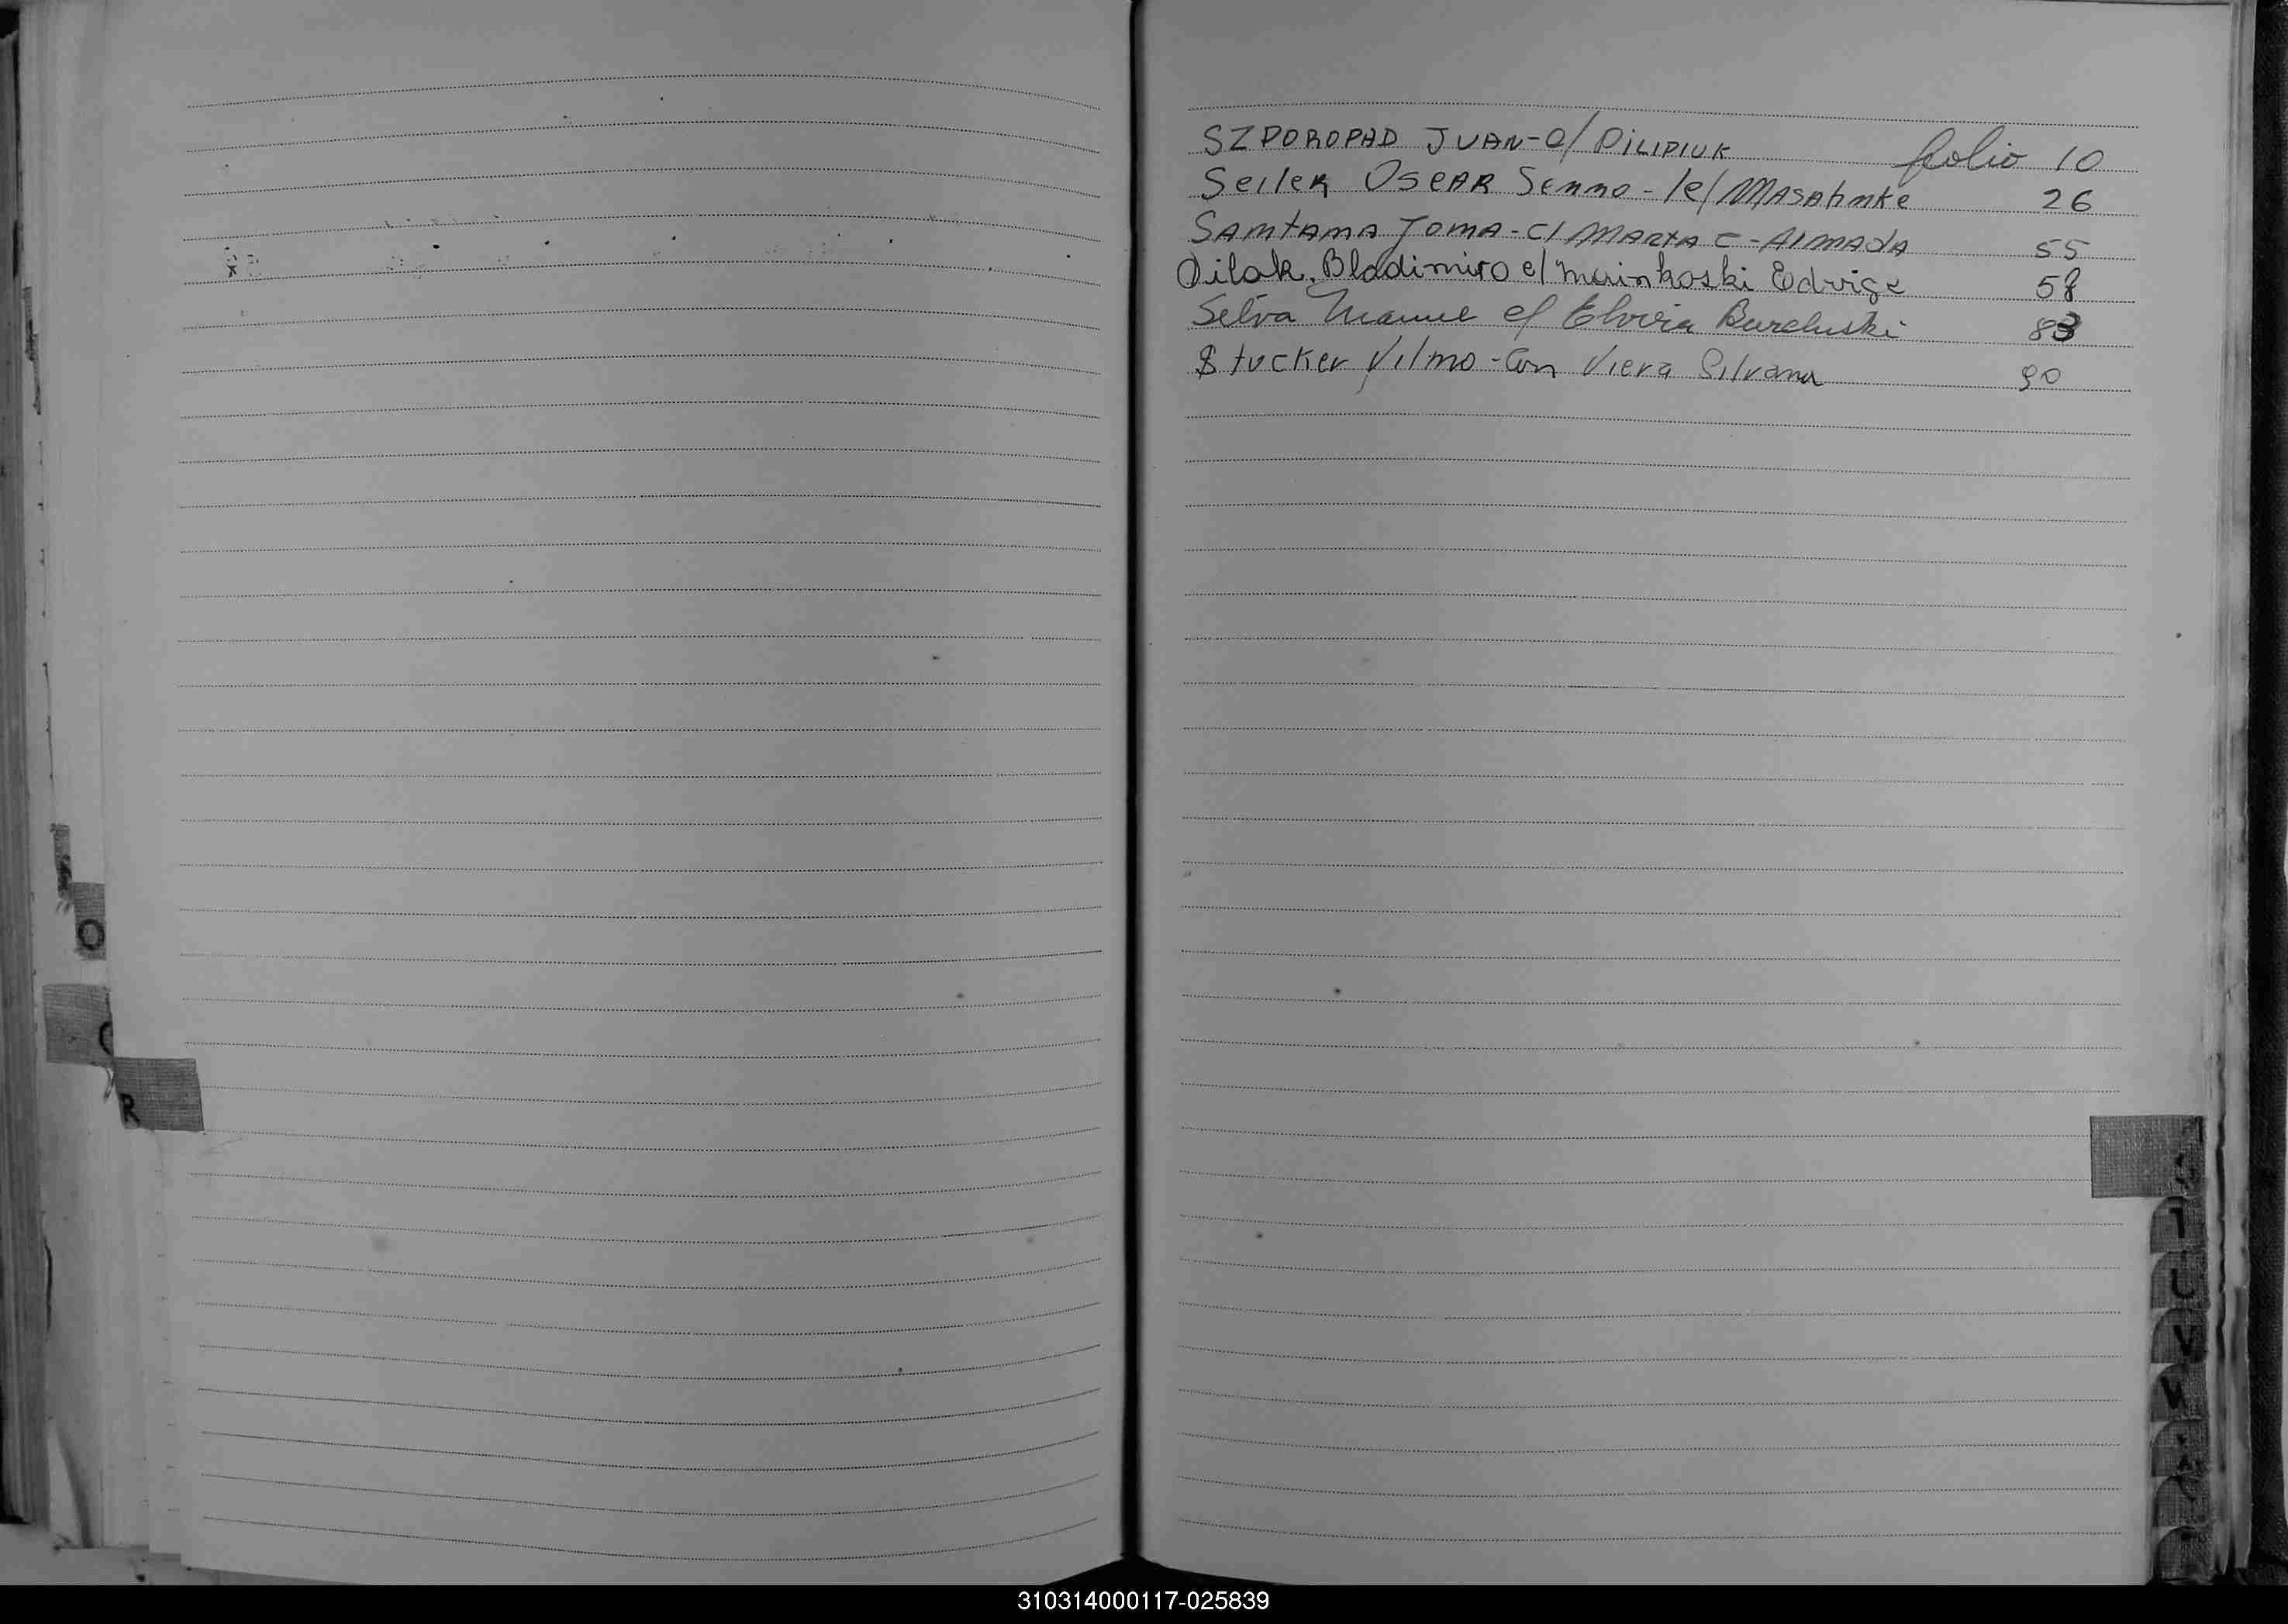 SZPOROPAD JUAN-C/ PILIPIUK folio 10
Seiler OSCAR Senno - /c/ MASAhnke 26
SAMtAMA JOMA - C/ MARtA C - AlMADA 55
Oilak, Bladimiro c/ Muinkoski Edvige 58
Selva Manue c/ Elvira Burcluski 83
Stucker Vilmo - Con Viera Silvana 90
O
R
U
V
310314000117-025839